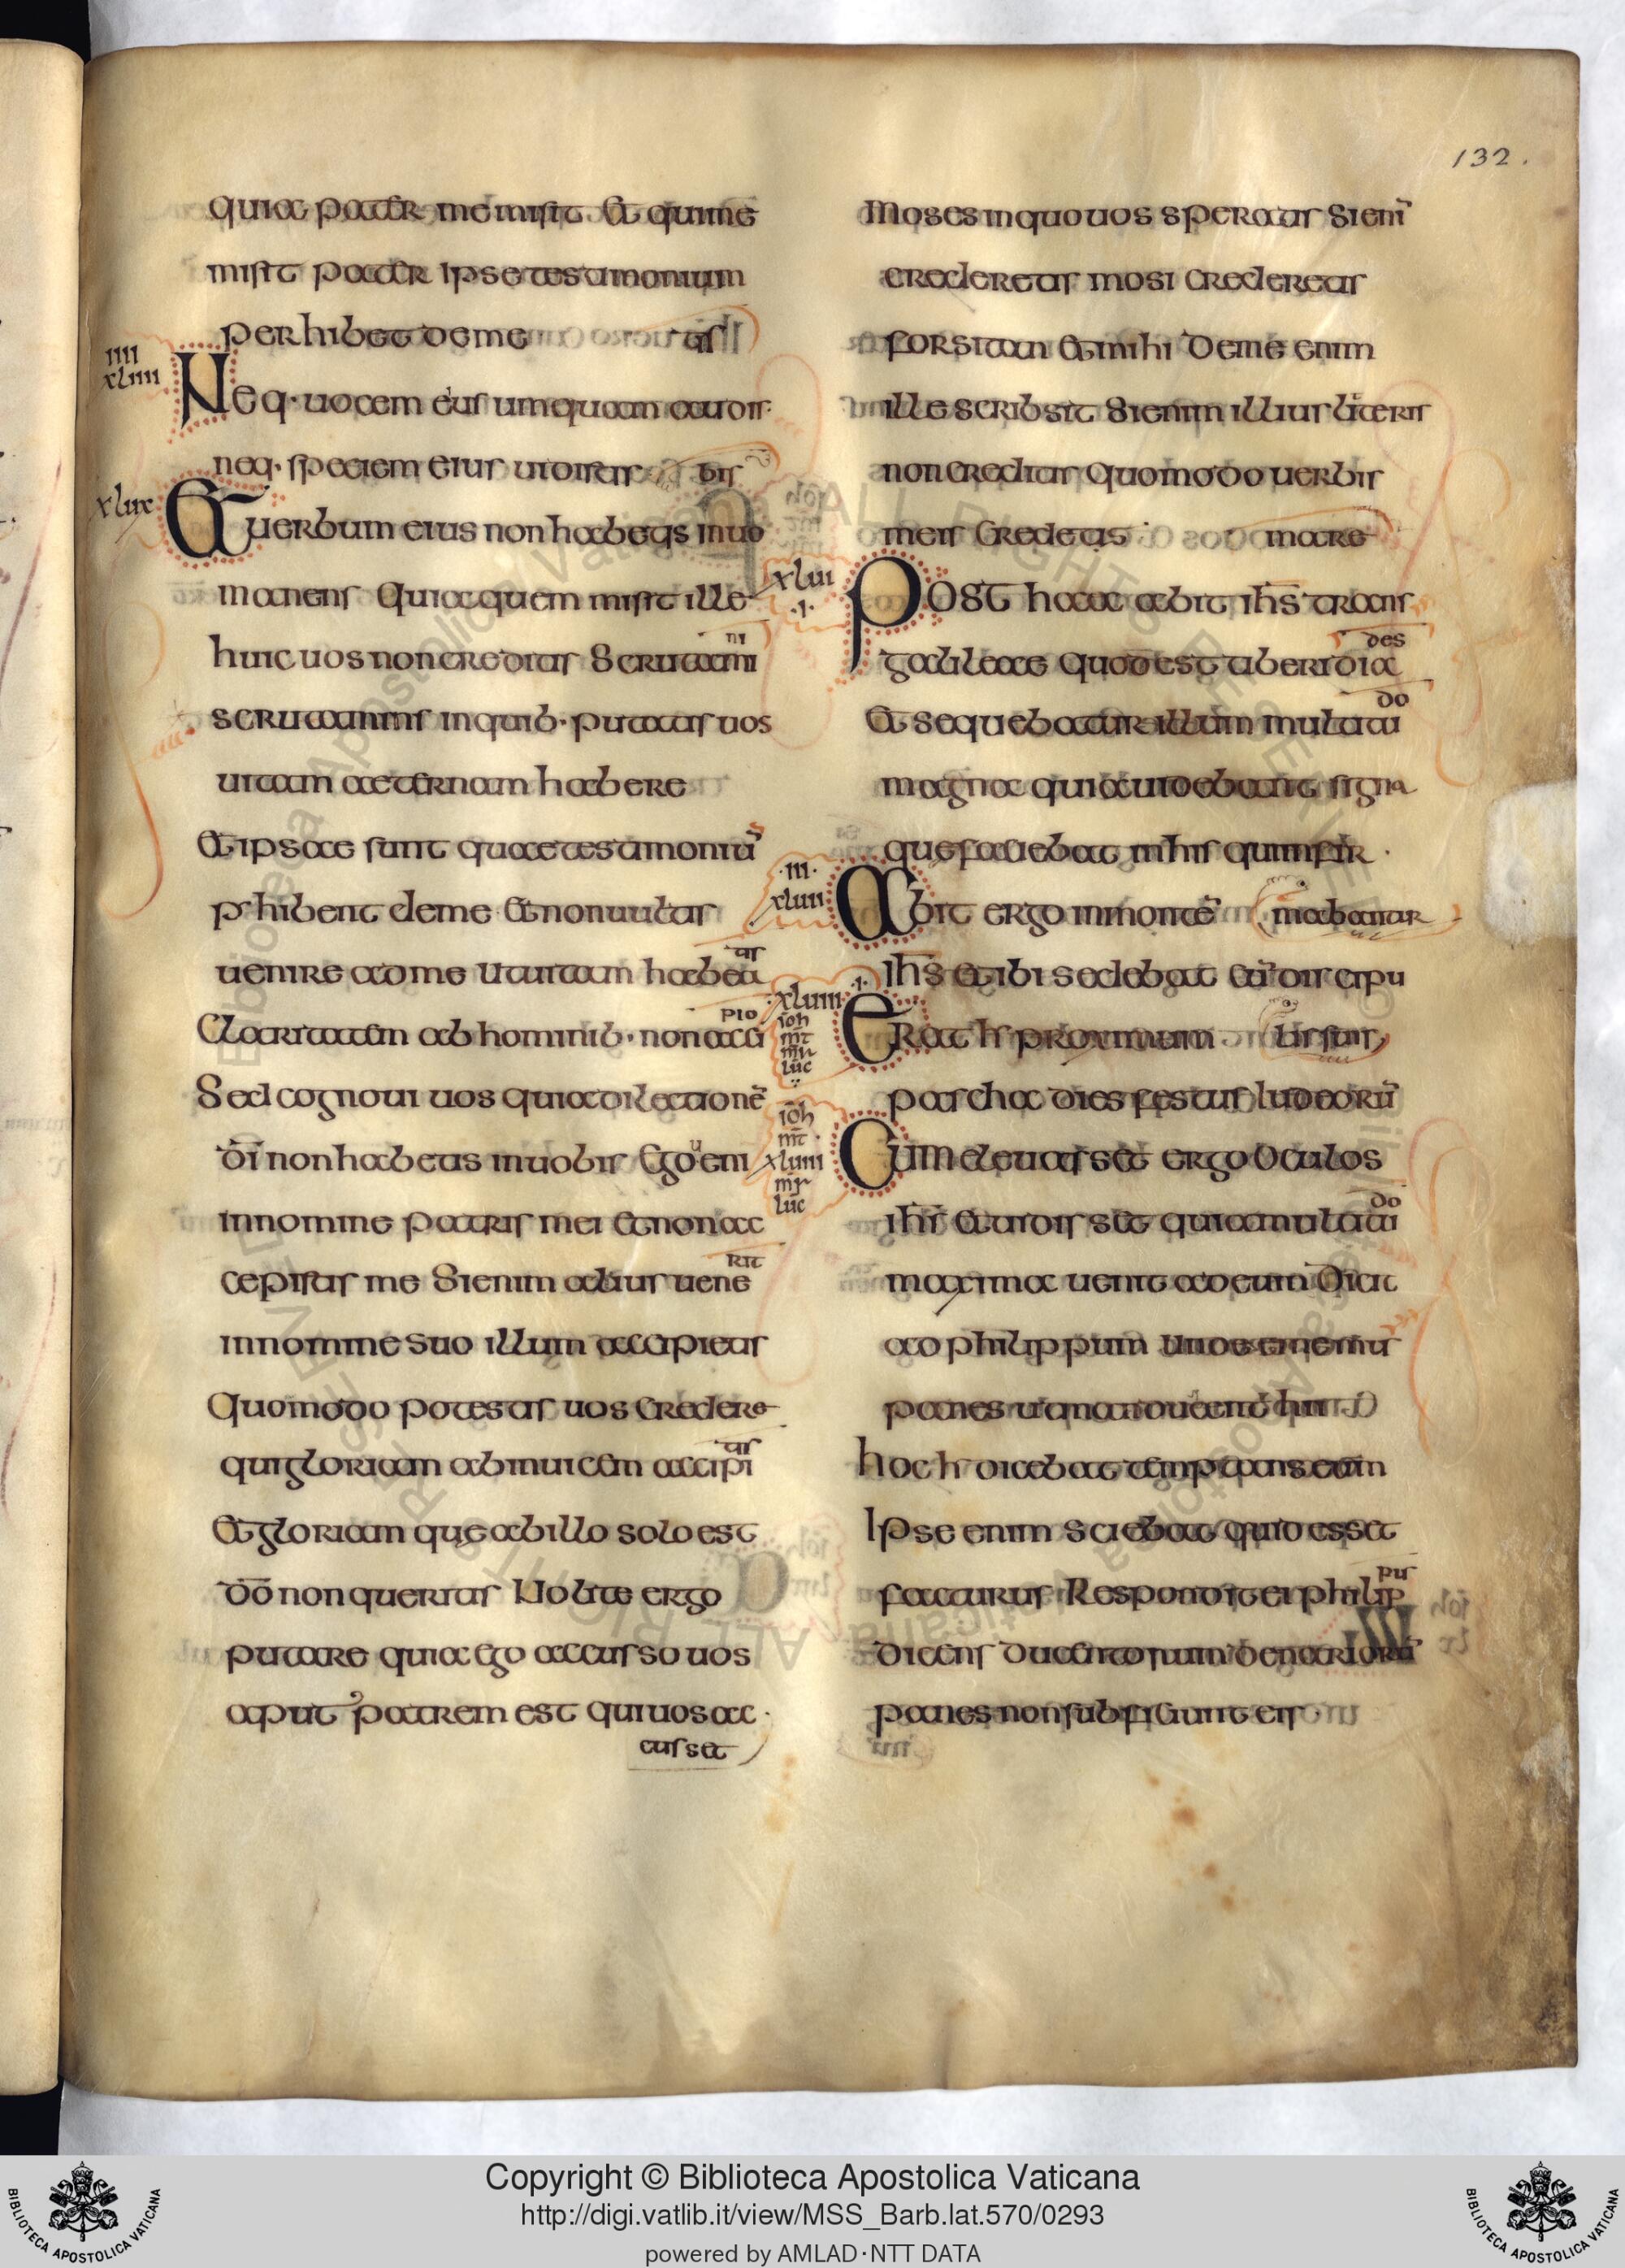 132.
quia pater me misit Et qui me
misit pater Ipse testimonium
perhibet de me
tis
IIII
xliiii
Neq· uocem eius umquam audis·
neq· speciem eius uidistis
bis
xlux
Et uerbum eius non habetis in uo
manens Quia quem misit ille
huic uos non creditis Scrutami
ni
scrutamini in quib· putatis uos
uitam aeternam habere
Et ipsae sunt quae testimoniū
phibent de me Et non uultis
uenire ad me Ut uitam habea
tis
Claritatem ab hominib· non acci
pio
Sed cognoui uos quia dilectionē
dī non habetis in uobis Ego ueni
in nomine patris mei Et non ac
cepistis me Si enim alius uene
rit
in nomine suo illum accipietis
Quomodo potestis uos Credere
qui gloriam ab inuicem accipi
tis
Et gloriam quę ab illo solo est
dō non queritis Nolite ergo
putare quia ego accusso uos
aput patrem est qui uos ac·
cusset
Moses in quo uos speratis Si enī
crederetis mosi Crederetis
forsitan Et mihi De me enim
ille scribsit Si enim illius literis
non creditis Quomodo uerbis
meis Credetis
mare
xlui
·I·
Post haec abiit ihs trans
galileae Quod est tiberidia
des
Et sequebatur illum multitu
do
magna quia uidebant signa
que faciebat in his qui infir·
·III·
xluii
Abiit ergo in montē
mabantur
ihs Et ibi sedebat Cū discipu
·I·
xluiii
ioh
mt
mr
luc
Erat h proximum
lis suis
pascha dies festus Iudeorū
ioh
mt
xluiiii
mr
luc
Cum eleuasset ergo Oculos
ihs Et uidisset quia multitu
do
maxima uenit ad eum Dicit
ad philippum Unde ememus
panes ut manducent hii
hoc h dicebat temptans eum
Ipse enim sciebat quid esset
facturus Respondit ei philip
pus
dicens ducentorum denariorū
panes non sufficiunt eis
Copyright © Biblioteca Apostolica Vaticana
http://digi.vatlib.it/view/MSS_Barb.lat.570/0293
powered by AMLAD·NTT DATA
BIBLIOTECA APOSTOLICA VATICANA
BIBLIOTECA APOSTOLICA VATICANA